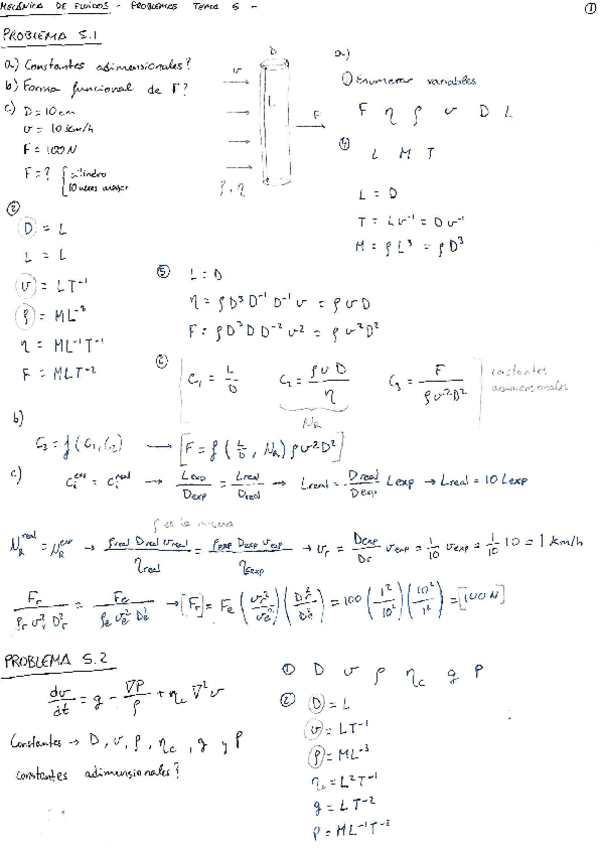 MECÁNICA DE FLUIDOS - PROBLEMAS TEMA 5 -
①
PROBLEMA 5.1
a) Constantes adimensionales?
b) Forma funcional de F?
c) D = 10 cm
v = 10 km/h
F = 100 N
F = ? { cilindro
10 veces mayor
D
v
L
F
ρ, η
a)
① Enumerar variables
F η ρ v D L
④
L M T
L = D
T = L v⁻¹ = D v⁻¹
M = ρL³ = ρD³
②
D = L
L = L
v = LT⁻¹
ρ = ML⁻³
η = ML⁻¹T⁻¹
F = MLT⁻²
⑤ L = D
η = ρD³D⁻¹D⁻¹v = ρvD
F = ρD³DD⁻²v² = ρv²D²
⑥ [C₁ = L/D C₂ = ρvD/η C₃ = F/ρv²D²] constantes adimensionales
N_R
b)
C₃ = f(C₁, C₂) → [F = f(L/D, N_R) ρv²D²]
c) Cᵢᵉˣᵖ = Cᵢʳᵉᵃˡ → Lexp/Dexp = Lreal/Dreal → Lreal = Dreal/Dexp Lexp → Lreal = 10 Lexp
ρ es la misma
N_Rʳᵉᵃˡ = N_Rᵉˣᵖ → ρreal Dreal vreal/ηreal = ρexp Dexp vexp/ηexp → vr = Dexp/Dr vexp = 1/10 vexp = 1/10 10 = 1 km/h
Fr/ρr vr² Dr² = Fe/ρe ve² De² → [Fr] = Fe (vr²/ve²)(Dr²/De²) = 100 (1²/10²)(10²/1²) = [100 N]
PROBLEMA 5.2
dv/dt = g - ∇P/ρ + ηc ∇²v
Constantes → D, v, ρ, ηc, g y P
constantes adimensionales?
① D v ρ ηc g P
② D = L
v = LT⁻¹
ρ = ML⁻³
ηc = L²T⁻¹
g = LT⁻²
P = ML⁻¹T⁻²